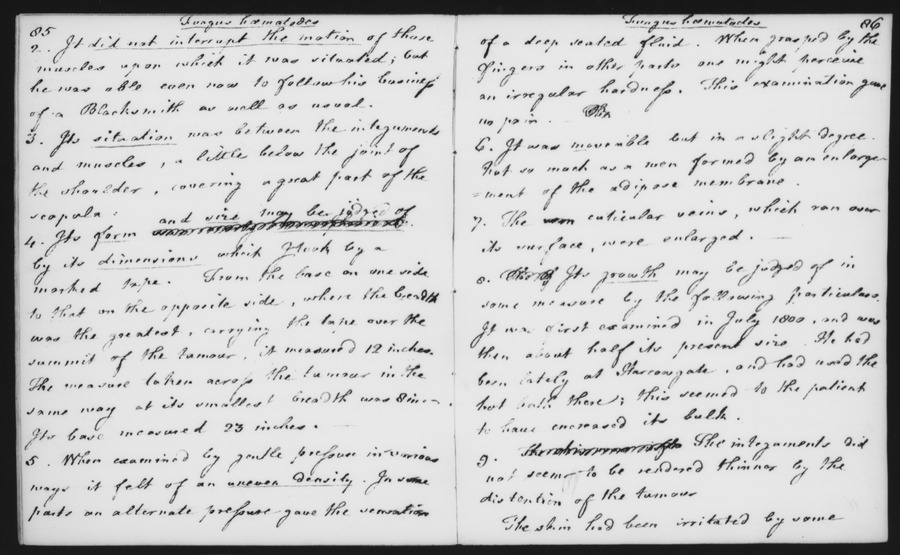 85
Fungus hæmatodes
2. It did not interrupt the motion of those
muscles upon which it was situated; but
he was able even now to follow his business
of a Blacksmith as well as usual.
3. Its situation was between the integuments
and muscles, a little below the joint of
the shoulder, covering a great part of the
scapula:
4. Its form and size may be judged of
by its dimensions which I took by a
marked tape. From the base on one side
to that on the opposite side, where the breadth
was the greatest, carrying the tape over the
summit of the tumour, it measured 12 inches.
The measure taken across the tumour in the
same way at its smallest breadth was 8 in-.
Its base measured 23 inches.
5. When examined by gentle pressure in various
ways it felt of an uneven density. In some
parts an alternate pressure gave the sensation
Fungus hæmatodes
86
of a deep seated fluid. When grasped by the
fingers in other parts one might perceive
an irregular hardness. This examination gave
no pain.
6. It was moveable but in a slight degree.
Not so much as a wen formed by an enlarge-
=ment of the adipose membrane.
7. The cuticular veins, which ran over
its surface, were enlarged.
8. Its growth may be judged of in
some measure by the following particulars.
It was first examined in July 1800, and was
then about half its present size. He had
been lately at Harrowgate, and had used the
hot bath there; this seemed to the patient
to have encreased its bulk.
9. The integuments did
not seem to be rendered thinner by the
distention of the tumour
The skin had been irritated by some